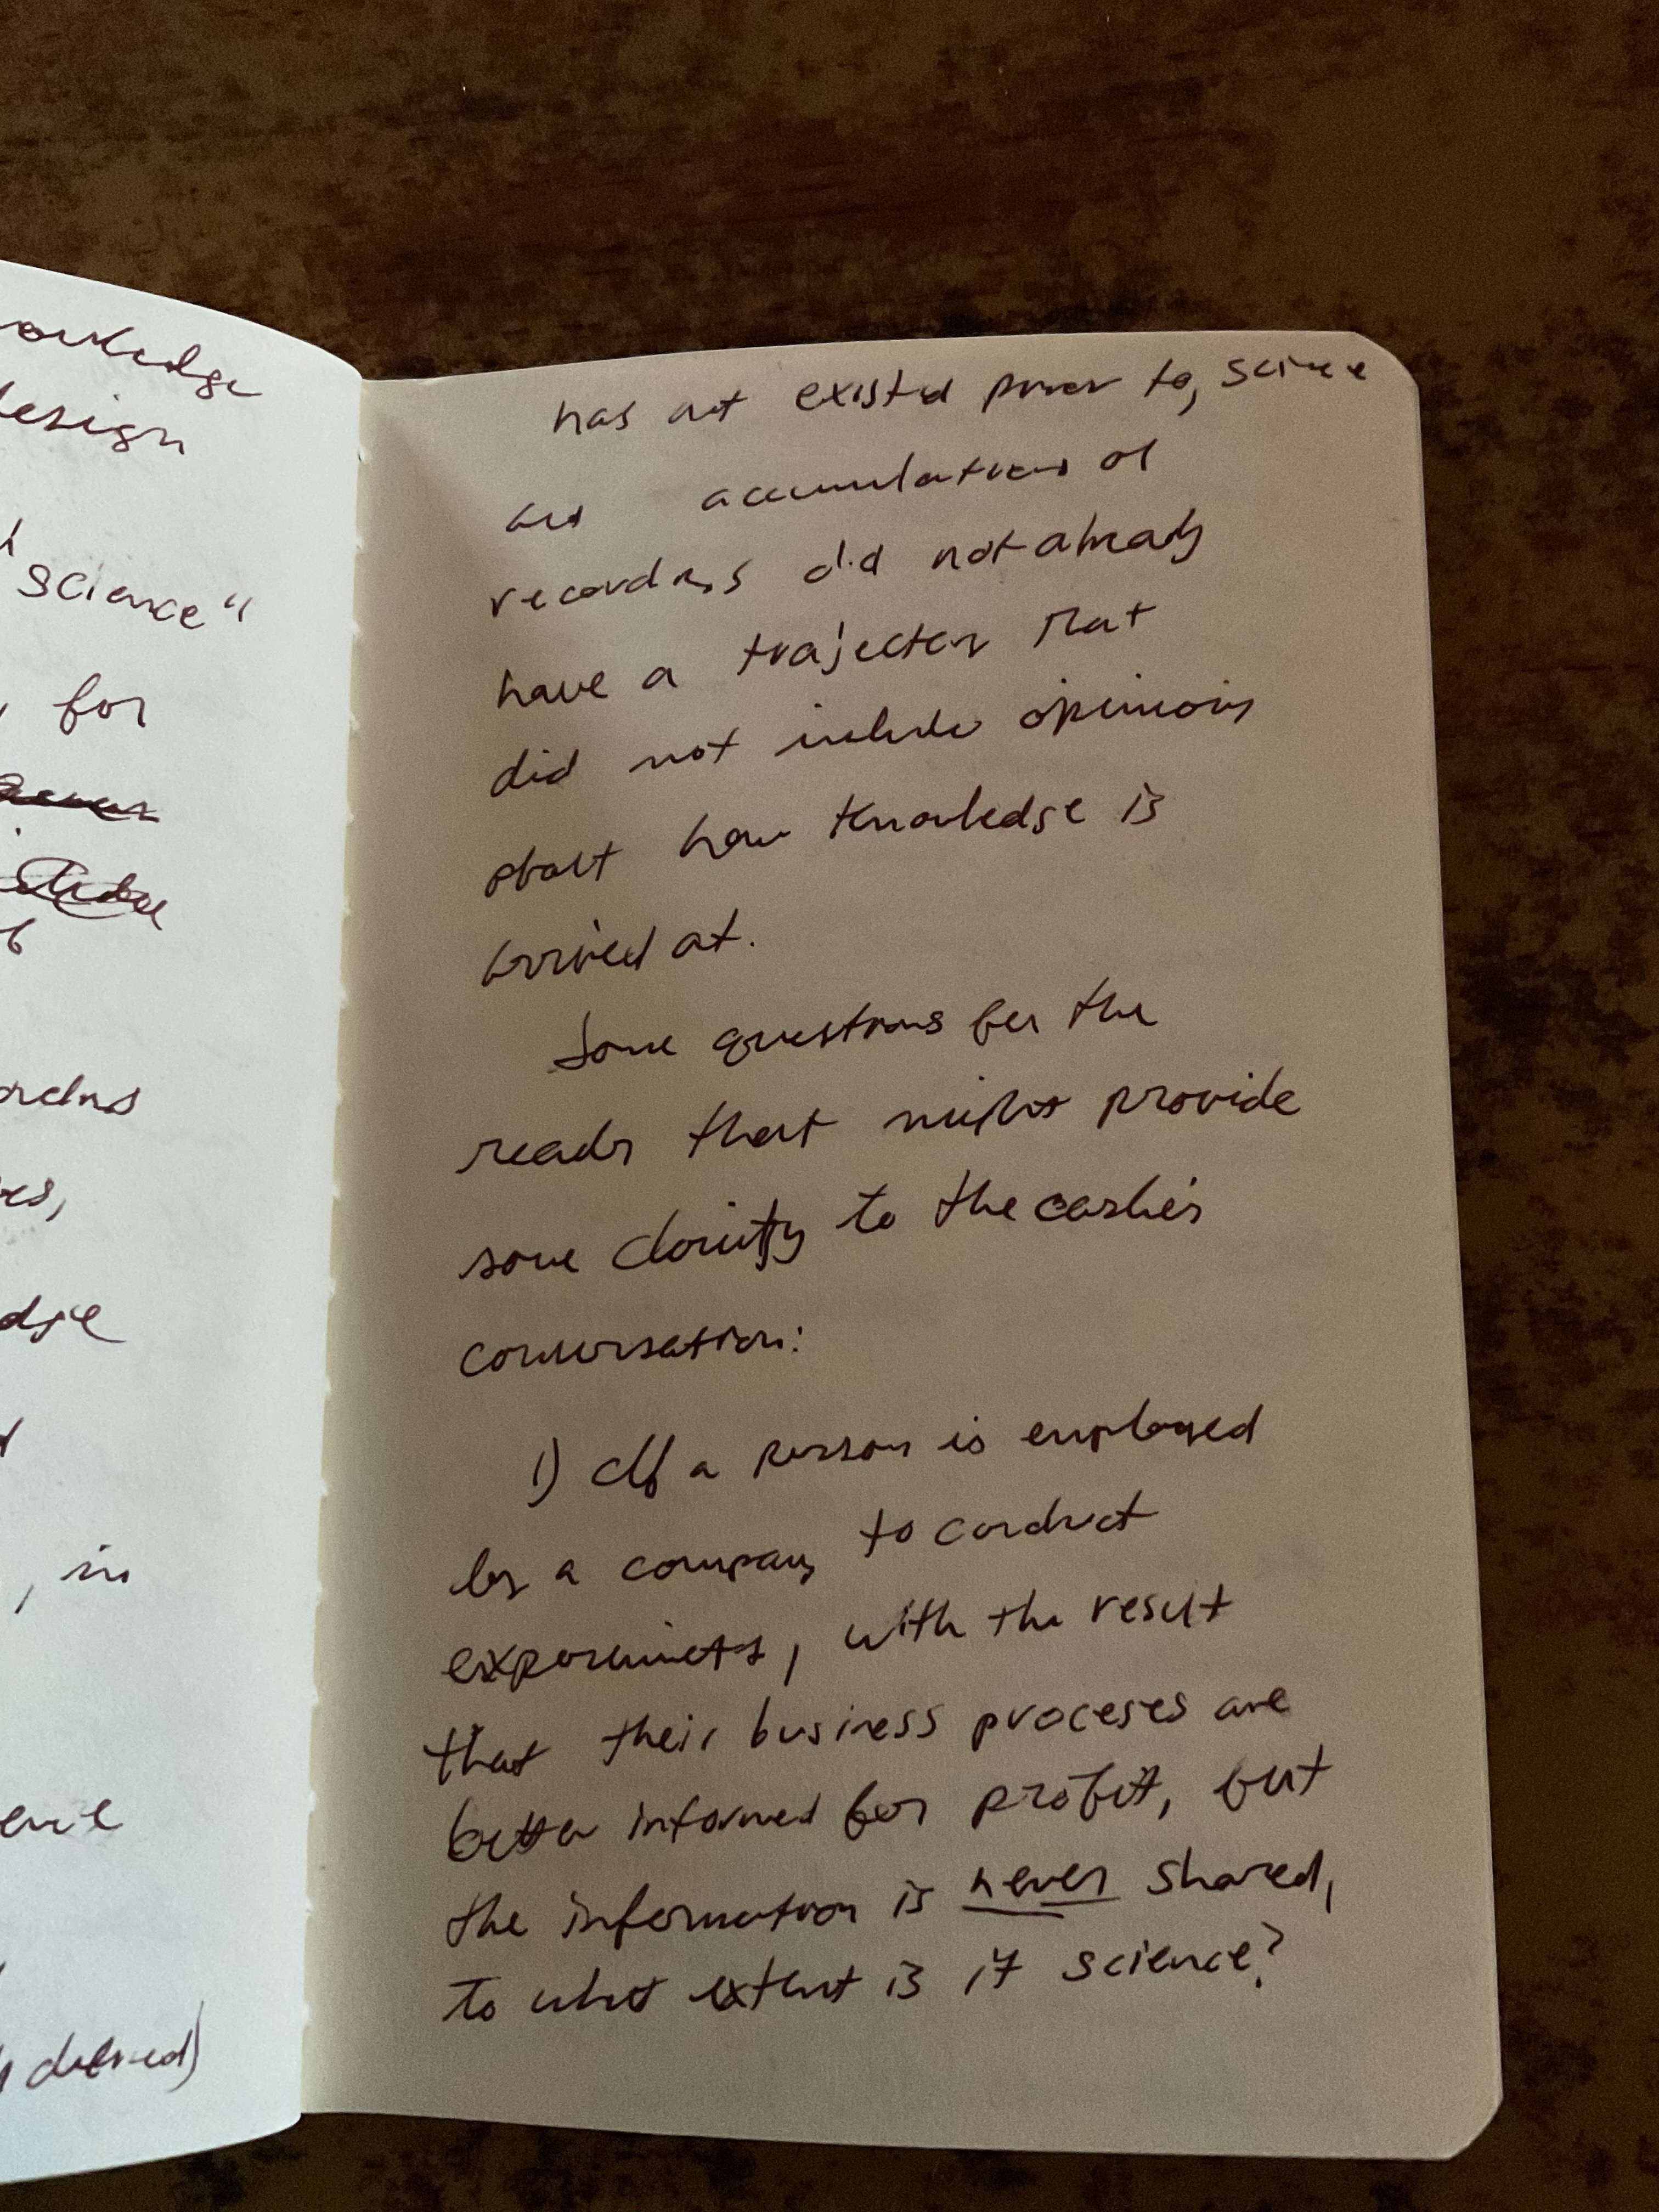 owledge
design
science"
for
, in
defined)
has not existed prior to, science
accumulations of
recordings did not already
have a trajectory that
did not include opinions
about how knowledge is
arrived at.
Some questions for the
reader that might provide
some clarity to the earlier
conversation:
1) If a person is employed
by a company to conduct
experiments, with the result
that their business proceses are
better informed for profit, but
the information is never shared,
to what extent is it science?